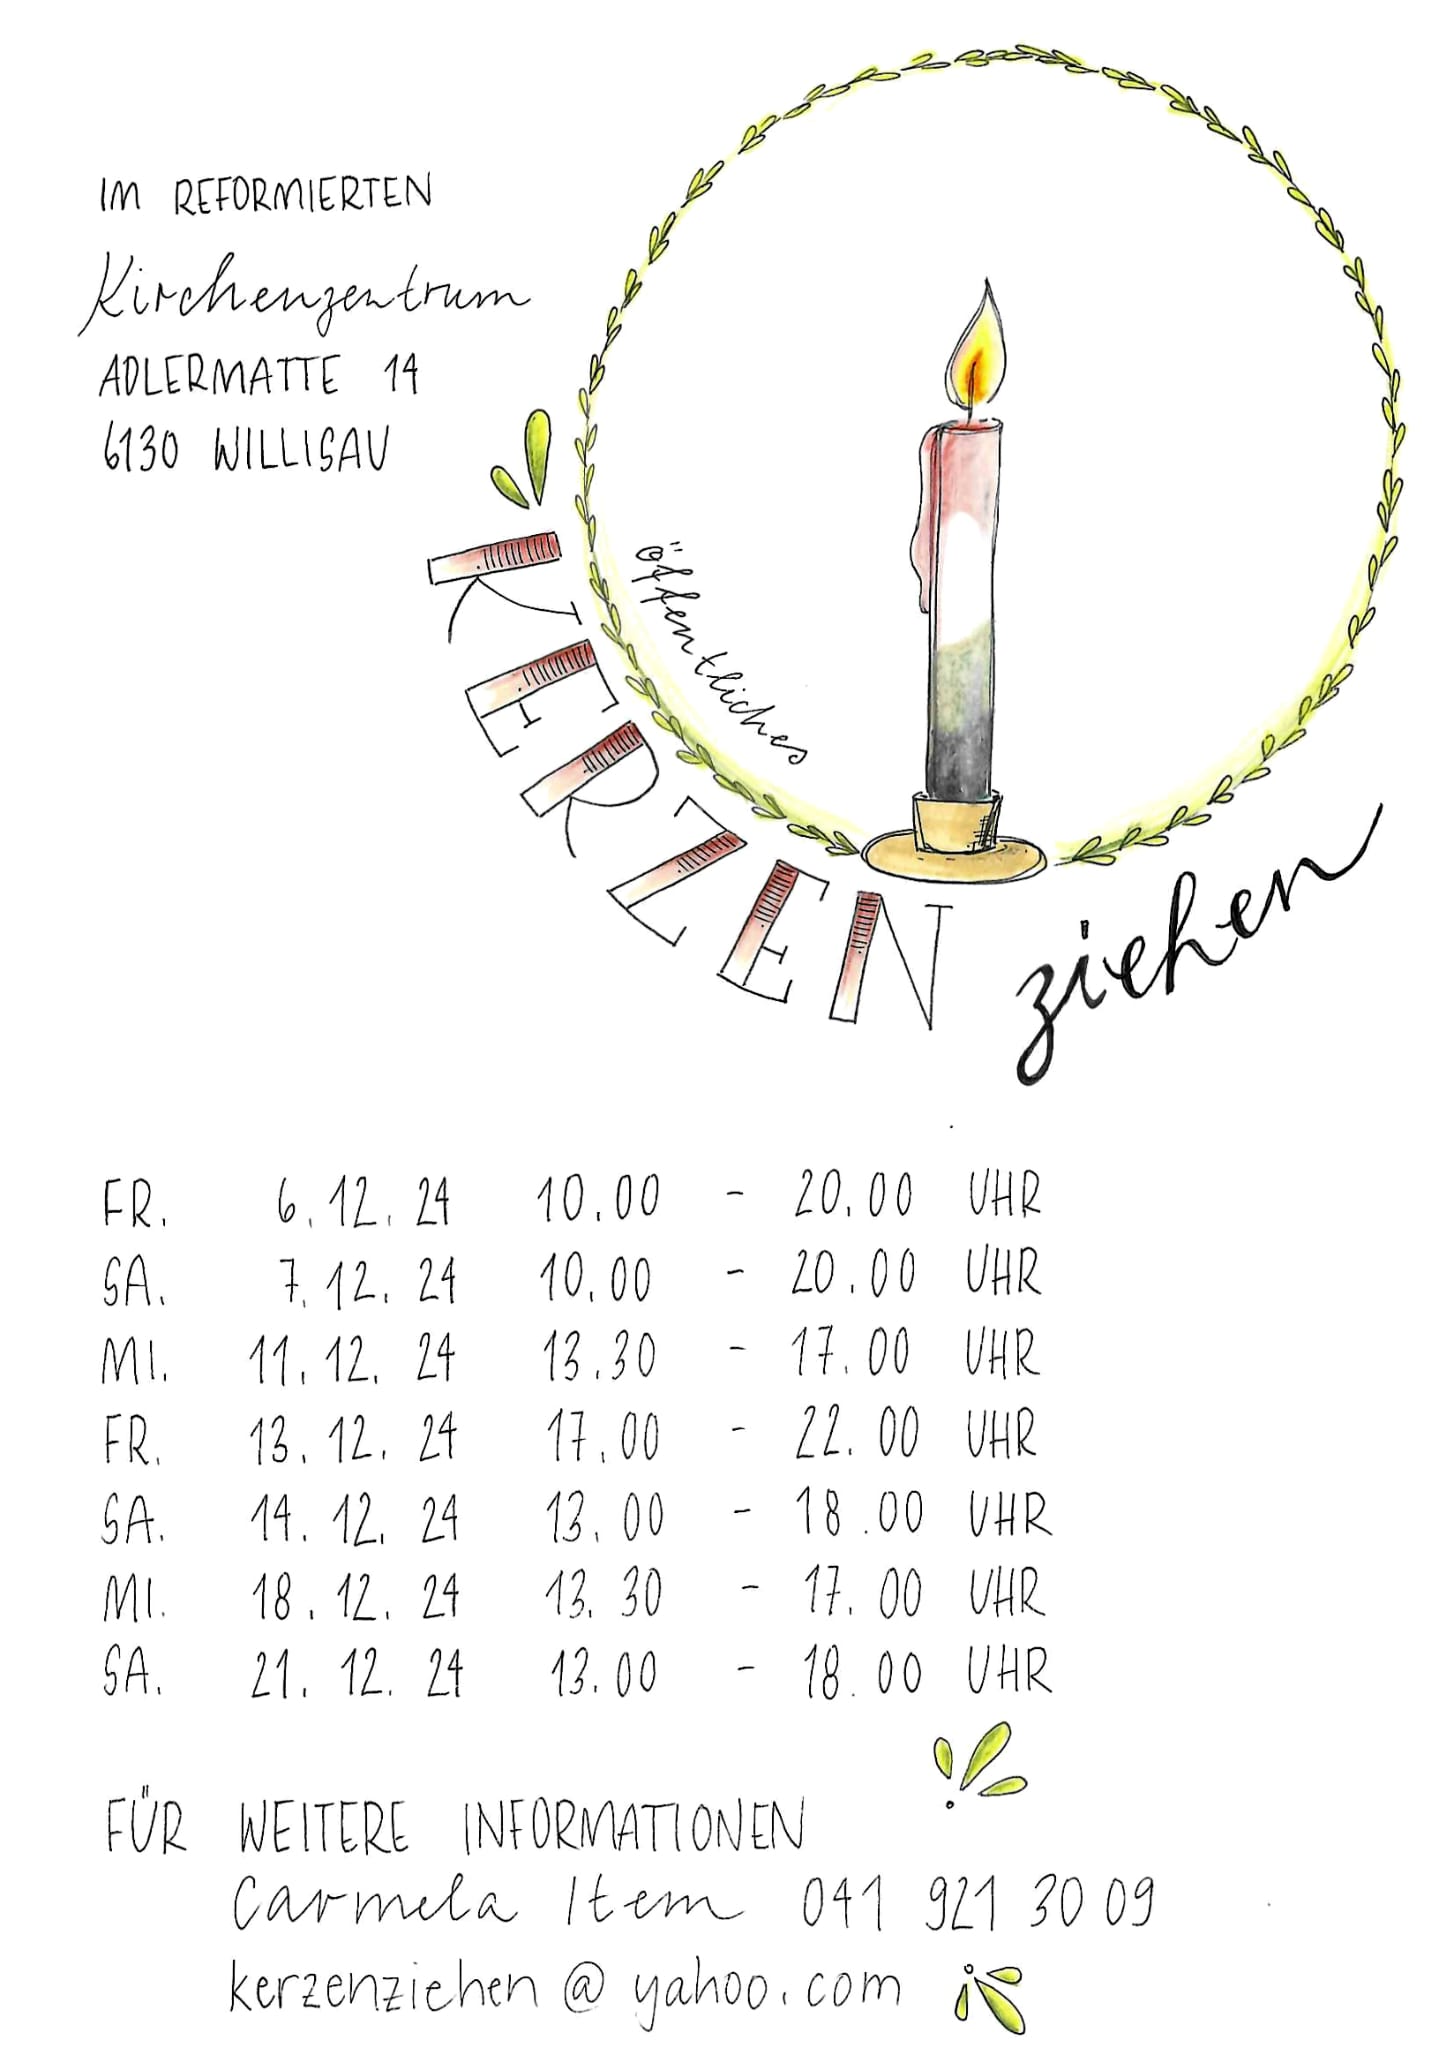 IM REFORMIERTEN
Kirchenzentrum
ADLERMATTE 14
6130 WILLISAU
öffentliches
KERZEN
ziehen
FR. 6.12.24 10.00 - 20.00 UHR
SA. 7.12.24 10.00 - 20.00 UHR
MI. 11.12.24 13.30 - 17.00 UHR
FR. 13.12.24 17.00 - 22.00 UHR
SA. 14.12.24 13.00 - 18.00 UHR
MI. 18.12.24 13.30 - 17.00 UHR
SA. 21.12.24 13.00 - 18.00 UHR
FÜR WEITERE INFORMATIONEN
Carmela Item 041 921 30 09
kerzenziehen@yahoo.com